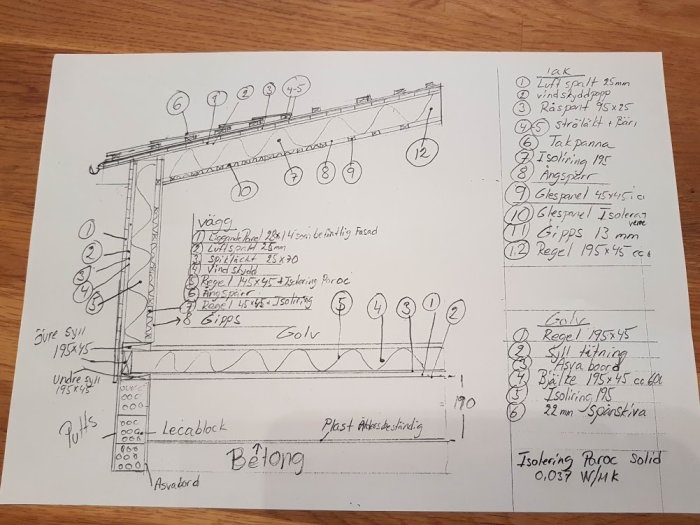 6
7
2
3
4-5
12
10
7
8
9
1
2
3
4
5
vägg
1 Liggande Panel 22x1
2 Luftspalt 25mm
3 Spikläckt 25x70
4 Vindskydd
5 Regel 145x45 + Isolering Paroc
6 Ångspärr
7 Regel 45x45 + Isolering
8 Gipps
Golv
Övre Syll
195x45
undre Syll
195x45
5
4
3
1
2
190
Putts
Lecablock
Plast
Betong
Asvabord
Tak
1 Luftspalt 25mm
2 vindskyddpapp
3 Råspont 95x25
4-5 ströläkt + Bär
6 Takpanna
7 Isoliring 195
8 Ångspärr
9 Glespanel 45x45
10 Glespanel Isolering
11 Gipps 13 mm
12 Regel 195x45 cc
Golv
1 Regel 195x45
2 Syll tätning
3 Asvaboord
4 Bjälke 195x45 cc 60
5 Isoliring 195
6 22 mm Spånskiva
Isolering Paroc Solid
0,037 W/MK